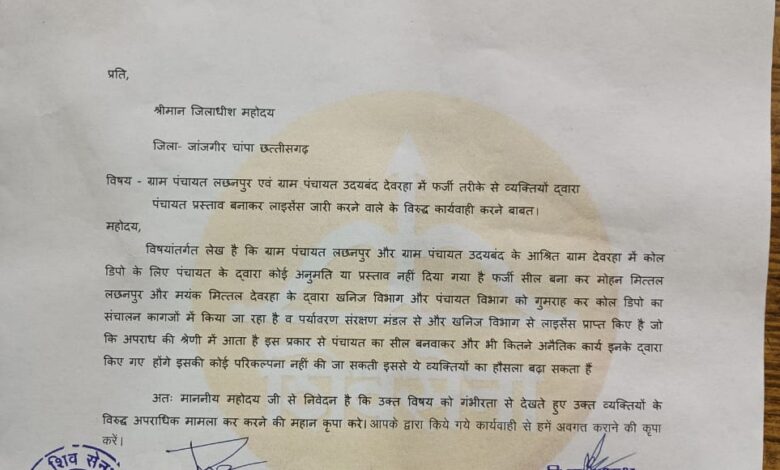 प्रति,
श्रीमान जिलाधीश महोदय
जिला- जांजगीर चांपा छत्तीसगढ़
विषय - ग्राम पंचायत लछनपुर एवं ग्राम पंचायत उदयबंद देवरहा में फर्जी तरीके से व्यक्तियों द्वारा
पंचायत प्रस्ताव बनाकर लाइसेंस जारी करने वाले के विरुद्ध कार्यवाही करने बाबत।
महोदय,
विषयांतर्गत लेख है कि ग्राम पंचायत लछनपुर और ग्राम पंचायत उदयबंद के आश्रित ग्राम देवरहा में कोल
डिपो के लिए पंचायत के द्वारा कोई अनुमति या प्रस्ताव नहीं दिया गया है फर्जी सील बना कर मोहन मित्तल
लछनपुर और मयंक मित्तल देवरहा के द्वारा खनिज विभाग और पंचायत विभाग को गुमराह कर कोल डिपो का
संचालन कागजों में किया जा रहा है व पर्यावरण संरक्षण मंडल से और खनिज विभाग से लाइसेंस प्राप्त किए है जो
कि अपराध की श्रेणी में आता है इस प्रकार से पंचायत का सील बनवाकर और भी कितने अनैतिक कार्य इनके द्वारा
किए गए होंगे इसकी कोई परिकल्पना नहीं की जा सकती इससे ये व्यक्तियों का हौसला बढ़ा सकता हैं
अतः माननीय महोदय जी से निवेदन है कि उक्त विषय को गंभीरता से देखते हुए उक्त व्यक्तियों के
विरुद्ध अपराधिक मामला कर करने की महान कृपा करे। आपके द्वारा किये गये कार्यवाही से हमें अवगत कराने की कृपा
करें।
शिवसेना
शिव सेना